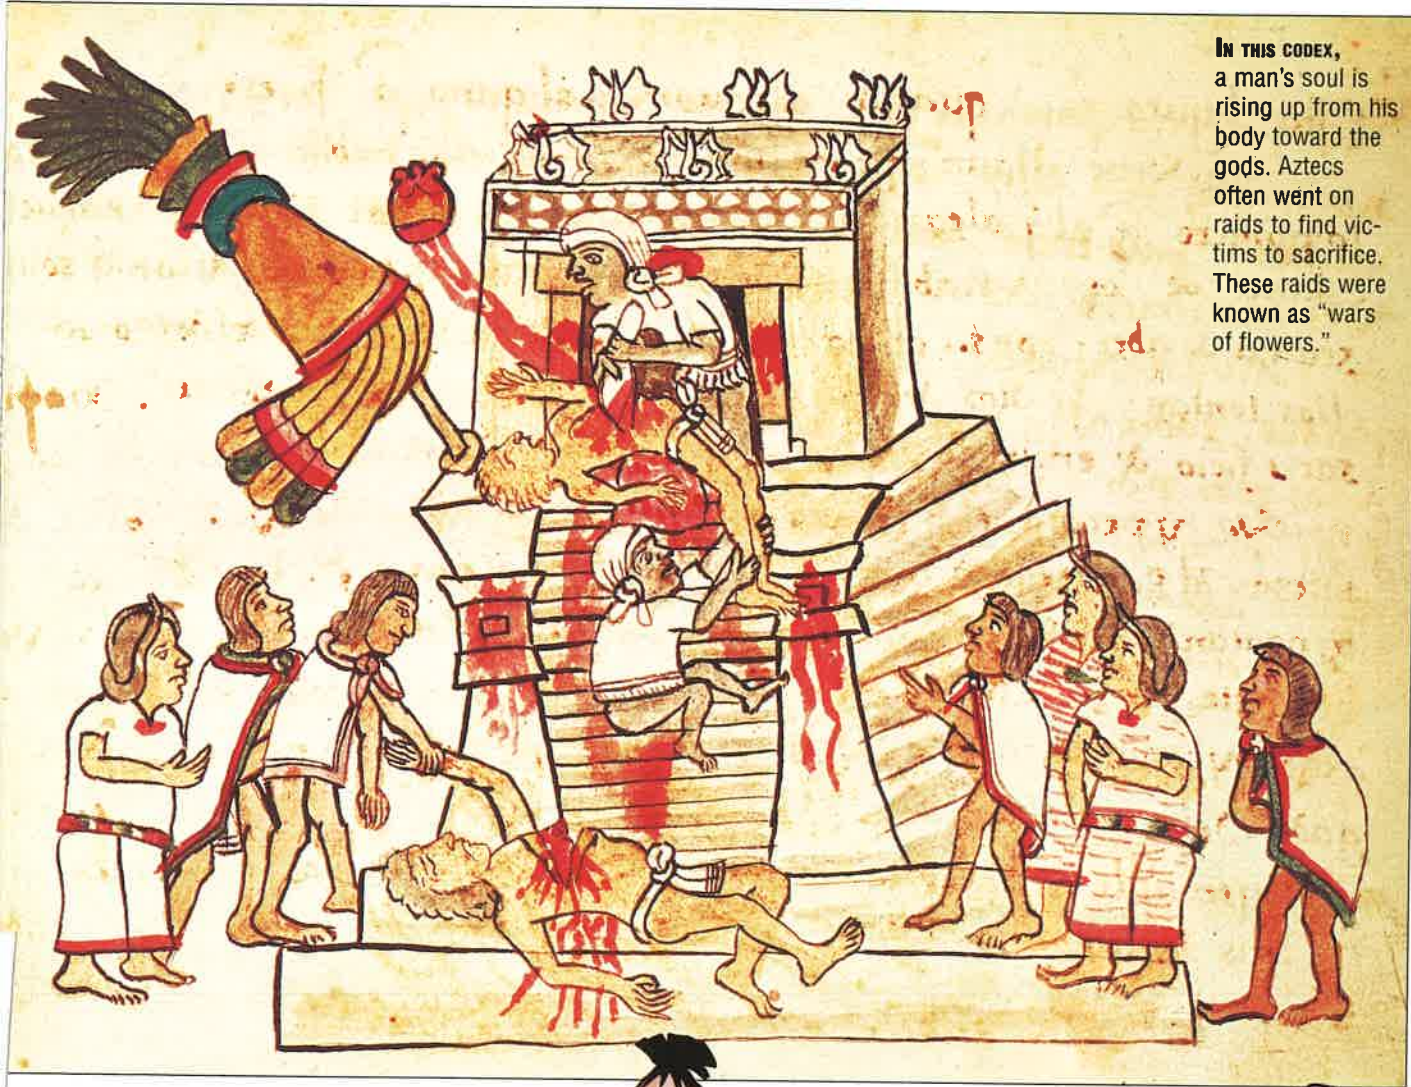 IN THIS CODEX,
a man's soul is
rising up from his
body toward the
gods. Aztecs
often went on
raids to find vic-
tims to sacrifice.
These raids were
known as "wars
of flowers."